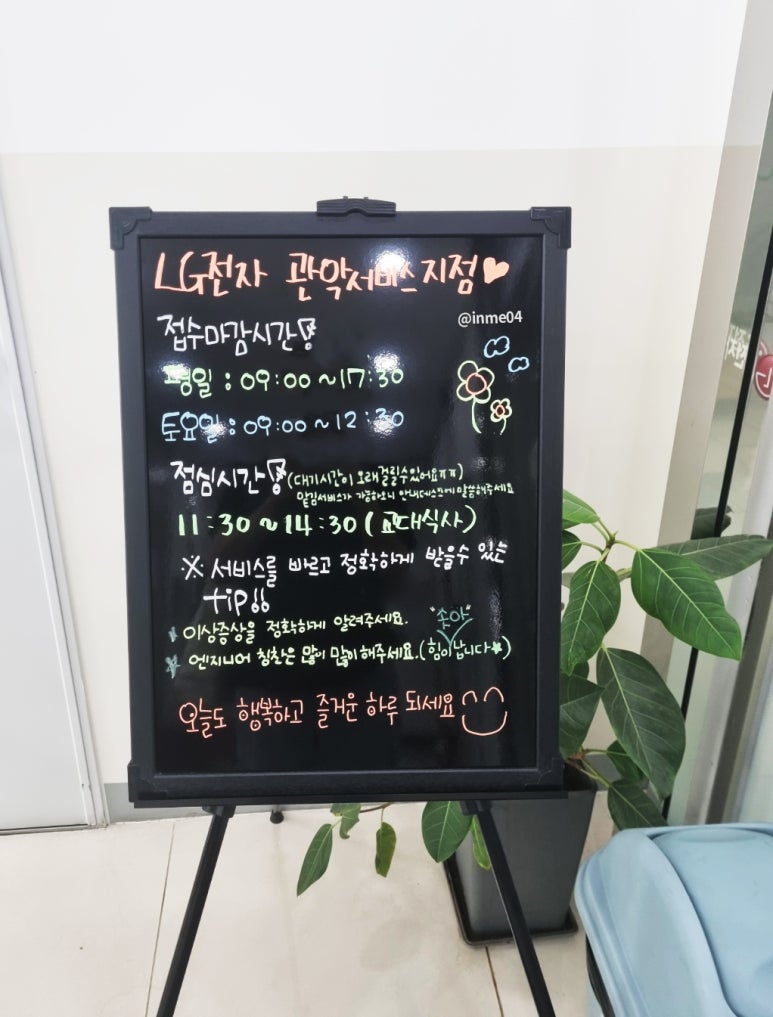 LG전자 관악서비스지점♥
@inme04
접수마감시간!
평일 : 09:00 ~ 17:30
토요일 : 09:00 ~ 12:30
점심시간! (대기시간이 오래걸릴수있어요ㅠㅠ)
맡김서비스가 가능하오니 안내데스크에 말씀해주세요
11:30 ~ 14:30 (교대식사)
※ 서비스를 빠르고 정확하게 받을수 있는
tip!!
이상증상을 정확하게 알려주세요.
"솟아"
엔지니어 칭찬은 많이 많이 해주세요.(힘이 납니다★)
오늘도 행복하고 즐거운 하루 되세요